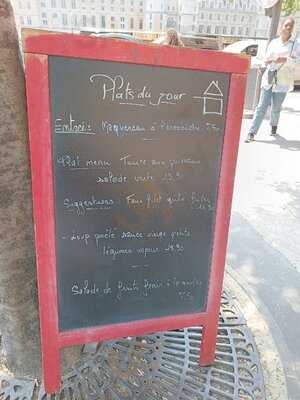 Plats du jour
Entrée: Maquereau à l'escabèche 7.50
Plat menu Tarte aux poireaux
salade verte 13.50
Suggestions Faux filet grillé frites
- Loup poêlé sauce vierge petits
légumes vapeur 18.90
Salade de fruits frais à la menthe
7.50